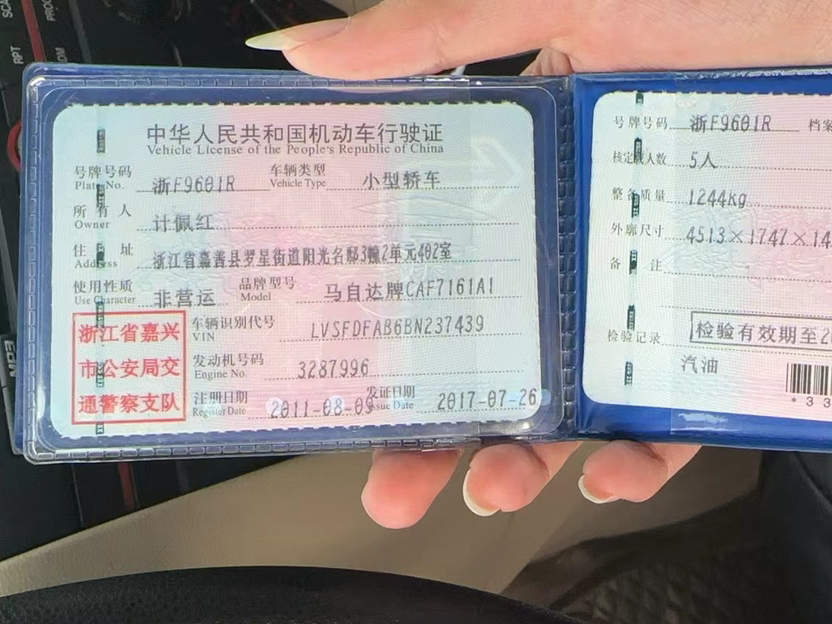 中华人民共和国机动车行驶证
Vehicle License of the People's Republic of China
号牌号码 浙F9601R 车辆类型 小型轿车
Plate No. Vehicle Type
所有人 计佩红
Owner
住址 浙江省嘉善县罗星街道阳光名邸3幢2单元402室
Address
使用性质 非营运 品牌型号 马自达牌CAF7161A1
Use Character Model
浙江省嘉兴
市公安局交
通警察支队
车辆识别代号 LVSFDFAB6BN237439
VIN
发动机号码 3287996
Engine No.
注册日期 2011-08-09 发证日期 2017-07-26
Register Date Issue Date
号牌号码 浙F9601R 档案
核定载人数 5人
整备质量 1244kg
外廓尺寸 4513×1747×14
备注
检验记录 检验有效期至20
汽油
*33
MP3
RPT
SCA